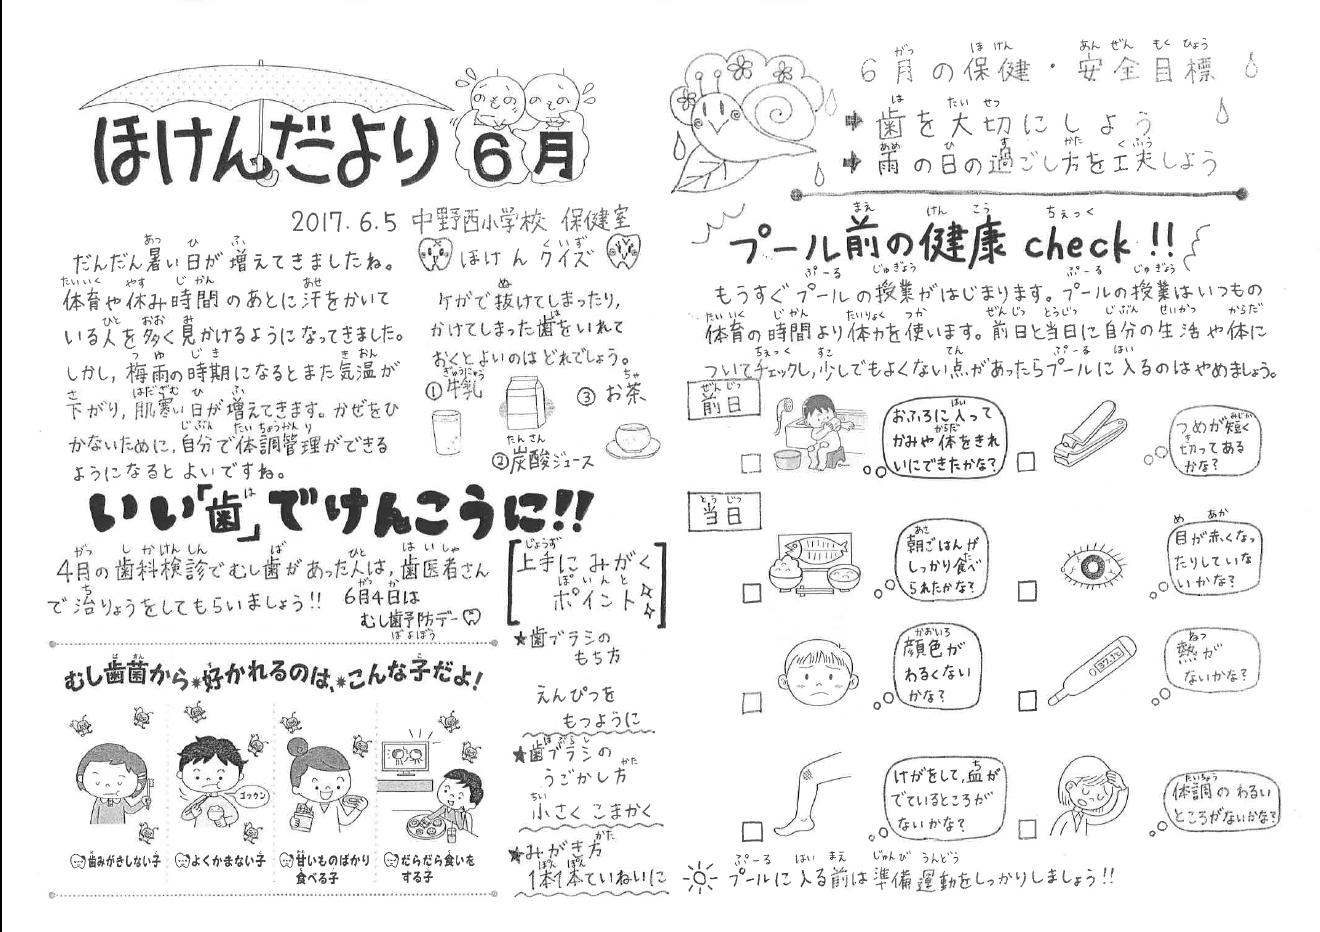 ほけんだより 6月
2017.6.5 中野西小学校 保健室
だんだん暑い日が増えてきましたね。
体育や休み時間のあとに汗をかいて
いる人を多く見かけるようになってきました。
しかし、梅雨の時期になるとまた気温が
下がり、肌寒い日が増えてきます。かぜをひ
かないために、自分で体調管理ができる
ようになるとよいですね。
ほけんクイズ
ケガで抜けてしまったり、
かけてしまった歯をいれて
おくとよいのはどれでしょう。
①牛乳
③お茶
②炭酸ジュース
いい「歯」でけんこうに!!
4月の歯科検診でむし歯があった人は、歯医者さん
で治りょうをしてもらいましょう!!
6月4日は
むし歯予防デー
むし歯菌から好かれるのは、こんな子だよ!
ゴックン
歯みがきしない子
よくかまない子
甘いものばかり
食べる子
だらだら食いを
する子
上手にみがく
ポイント
★歯ブラシの
もち方
えんぴつを
もつように
★歯ブラシの
うごかし方
小さくこまかく
★みがき方
1本1本ていねいに
6月の保健・安全目標
歯を大切にしよう
雨の日の過ごし方を工夫しよう
プール前の健康check!!
もうすぐプールの授業がはじまります。プールの授業はいつもの
体育の時間より体力を使います。前日と当日に自分の生活や体に
ついてチェックし、少しでもよくない点があったらプールに入るのはやめましょう。
前日
おふろに入って
かみや体をきれ
いにできたかな?
つめが短く
切ってある
かな?
当日
朝ごはんが
しっかり食べ
られたかな?
目が赤くなっ
たりしていな
いかな?
顔色が
わるくない
かな?
37.1℃
熱が
ないかな?
けがをして、血が
でているところが
ないかな?
体調のわるい
ところがないかな?
プールに入る前は準備運動をしっかりしましょう!!